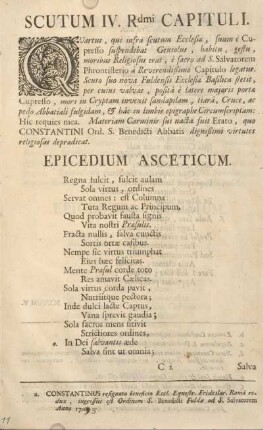 SCUTUM IV. Rdmi CAPITULI.
QVartus, qui infra scutum Ecclesiæ, suum è Cu-
presso suspendebat Genitulus, habitu, gestu,
moribus Religiosus erat, à sacro ad S. Salvatorem
Phrontisterio à Reverendissimo Capitulo legatus.
Scuto suo nova Fuldensis Ecclesiæ Basilica stetit,
per cuius valvas, posita è latere majoris porta
Cupresso, mors in Cryptam invexit sandapilam, tiarâ, Cruce, ac
pedo Abbatiali fulgidam, & hâc in limbis epigraphe Circumscriptam:
Hic requies mea. Materiam Carminis sui nacta fuit Erato, quo
CONSTANTINI Ord. S. Benedicti Abbatis dignissimi virtutes
religiosas depradicat.
EPICEDIUM ASCETICUM.
Regna fulcit, fulcit aulam
Sola virtus, ordines
Servat omnes: est Columna
Tuta Regum ac Principum,
Quod probavit fausta signis
Vita nostri Præsulis.
Fracta nullis, salva cunctis
Sortis ortæ casibus.
Nempe sic virtus triumphat
Ejus hæc felicitas.
Mente Præsul corde toto
Res amavit Cælicas.
Sola virtus corda pavit,
Nutriitque pectora;
Inde dulci lacte Captus,
Vana sprevit gaudia;
Sola sacros mens sitivit
Strictiores ordines,
a. In Dei salvantis æde
Salva sint ut omnia;
C 2 Salva
a. CONSTANTINUS resignato beneficio Eccl. Equestr. Frideslar. Româ re-
dux, ingressus est Ordinem S. Benedicti Fuldæ ad S. Salvatorem
Anno